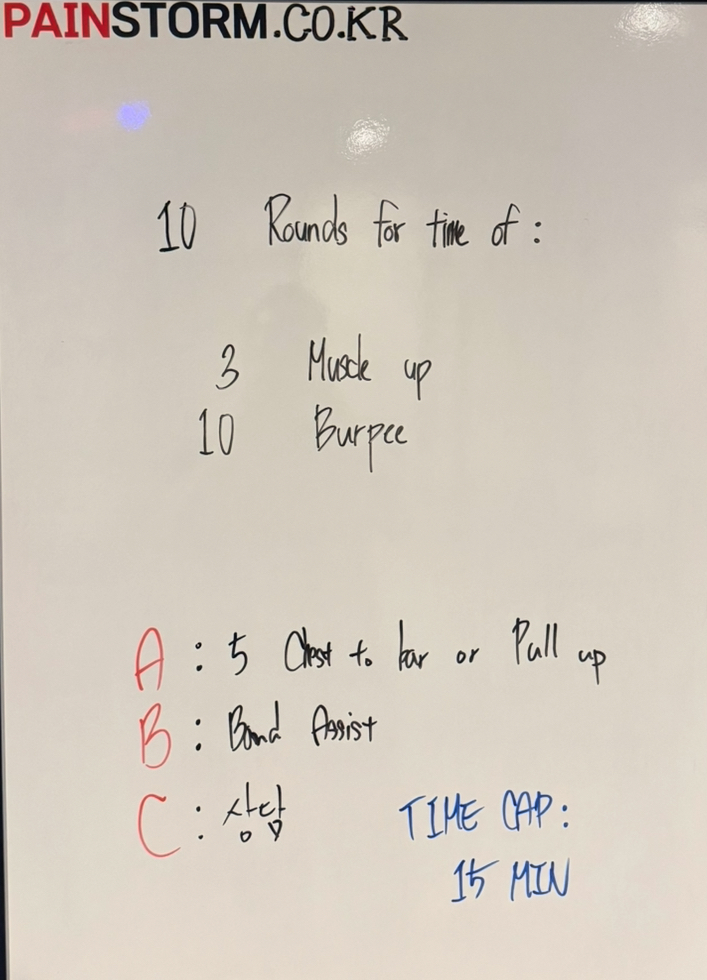 PAINSTORM.CO.KR
10 Rounds for time of :
3 Muscle up
10 Burpee
A : 5 Chest to bar or Pull up
B : Band Assist
C : 상담
TIME CAP :
15 MIN